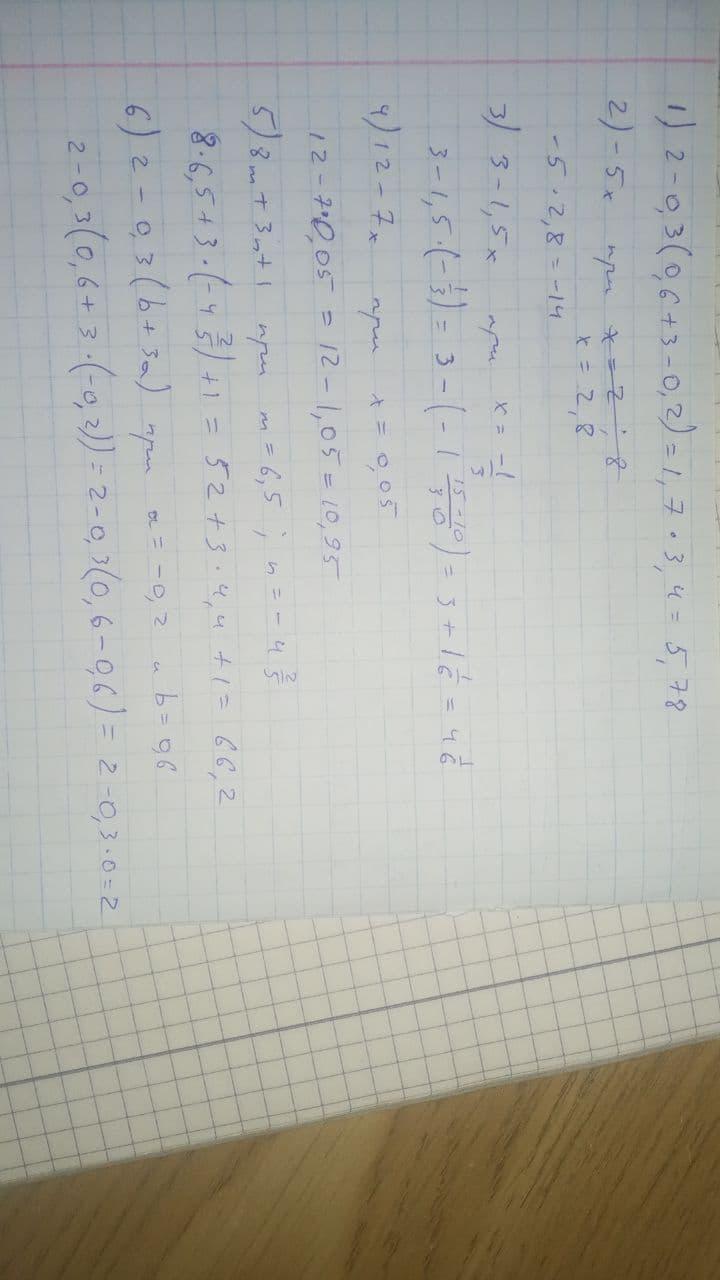 1) 2 - 0,3(0,6+3-0,2) = 1,7 · 3,4 = 5,78
2) -5x при x = 2,8
x = 2,8
-5 · 2,8 = -14
3) 3 - 1,5x при x = -1/3
3 - 1,5 · (-1/3) = 3 - (-1 15-10/30) = 3 + 1 1/6 = 4 1/6
4) 12 - 7x при x = 0,05
12 - 7·0,05 = 12 - 1,05 = 10,95
5) 8m + 3n + 1 при m = 6,5 ; n = -4 2/5
8·6,5 + 3·(-4 2/5) + 1 = 52 + 3·4,4 + 1 = 66,2
6) 2 - 0,3(b + 3a) при a = -0,2 и b = 0,6
2 - 0,3(0,6 + 3·(-0,2)) = 2 - 0,3(0,6 - 0,6) = 2 - 0,3·0 = 2